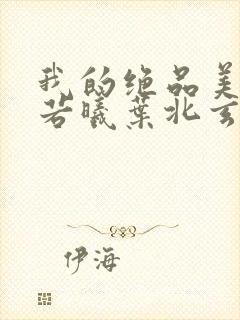 我的绝品美
若曦叶北玄
伊海